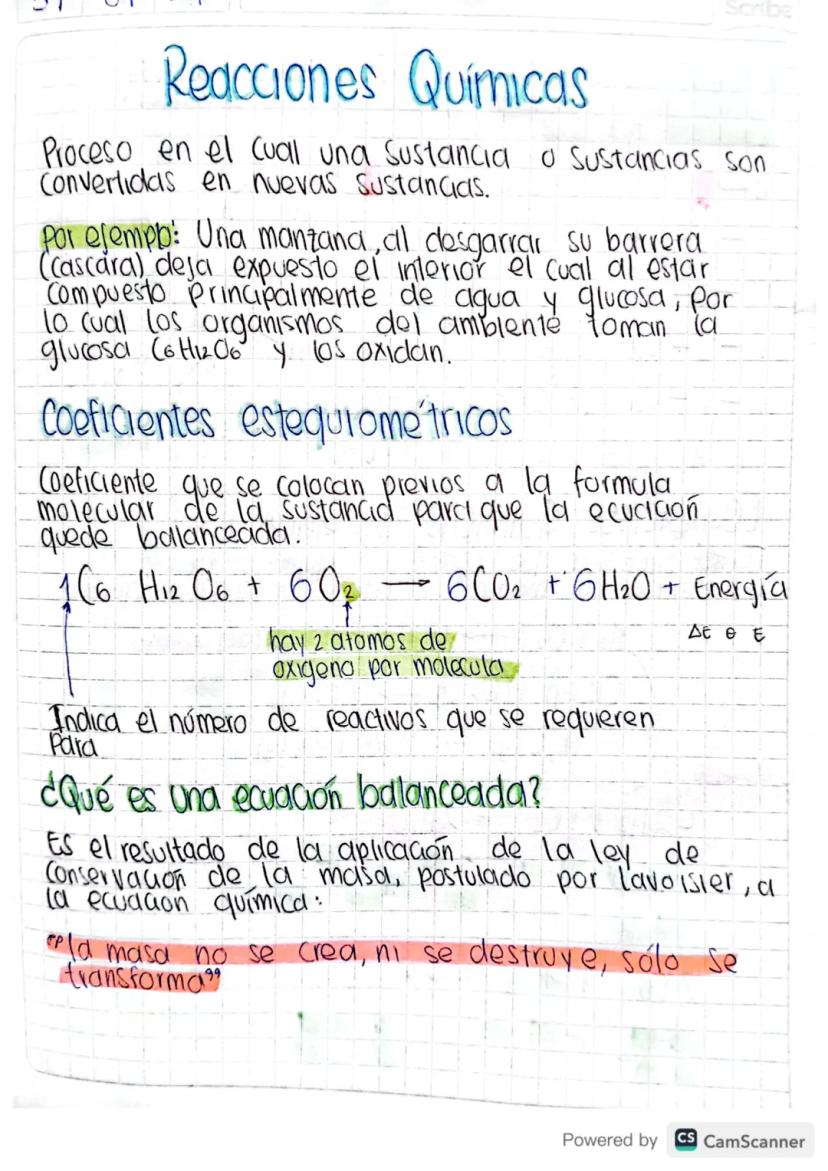 Scribe
Reacciones Químicas
Proceso en el cual una sustancia o sustancias son
convertidas en nuevas sustancias.
Por ejemplo: Una manzana, al desgarrar su barrera
(cascara) deja expuesto el interior el cual al estar
compuesto principalmente de agua y glucosa, por
lo cual los organismos del ambiente toman la
glucosa C6H12O6 y los oxidan.
Coeficientes estequiométricos
Coeficiente que se colocan previos a la formula
molecular de la sustancia para que la ecuación
quede balanceada.
1C6 H12 O6 + 6O2 → 6CO2 + 6H2O + Energía
hay 2 atomos de
oxigeno por molecula
ΔE θ E
Indica el número de reactivos que se requieren
Para
¿Qué es una ecuación balanceada?
Es el resultado de la aplicación de la ley de
Conservación de la masa, postulado por Lavoisier, a
la ecuacion química:
"la masa no se crea, ni se destruye, sólo se
transforma"
Powered by CS CamScanner